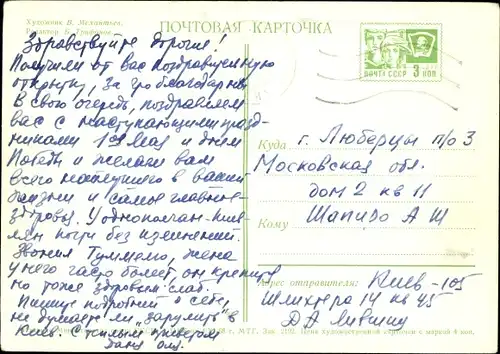 Художник В. Механтьев.
Редактор Б. Трифонов.
ПОЧТОВАЯ КАРТОЧКА
ПОЧТА СССР 3 КОП
Здравствуйте дорогие!
Получили от вас поздравительную
открытку, за что благодарны
В свою очередь, поздравляем
вас с наступающими празд-
никами 1ое Мая и днём
Победы и желаем вам
всего наилучшего в вашей
жизни и самое главное
здоровья. У однополчан-киев-
лян почти без изменений.
Звонил Туммело, жена
у него часто болеет, он крепится
но тоже здоровьем слаб.
Пишите подробней о себе,
не думаете ли "зарулить" в
Киев. С теплым приветом
ваш
Куда г. Люберцы п/о 3
Московская обл.
дом 2 кв 11
Кому Шапиро А Ш
Адрес отправителя: Киев-105
Шлихтера 14 кв 45
Лившиц
МТГ. Зак. Цена художественной карточки с маркой 4 коп.